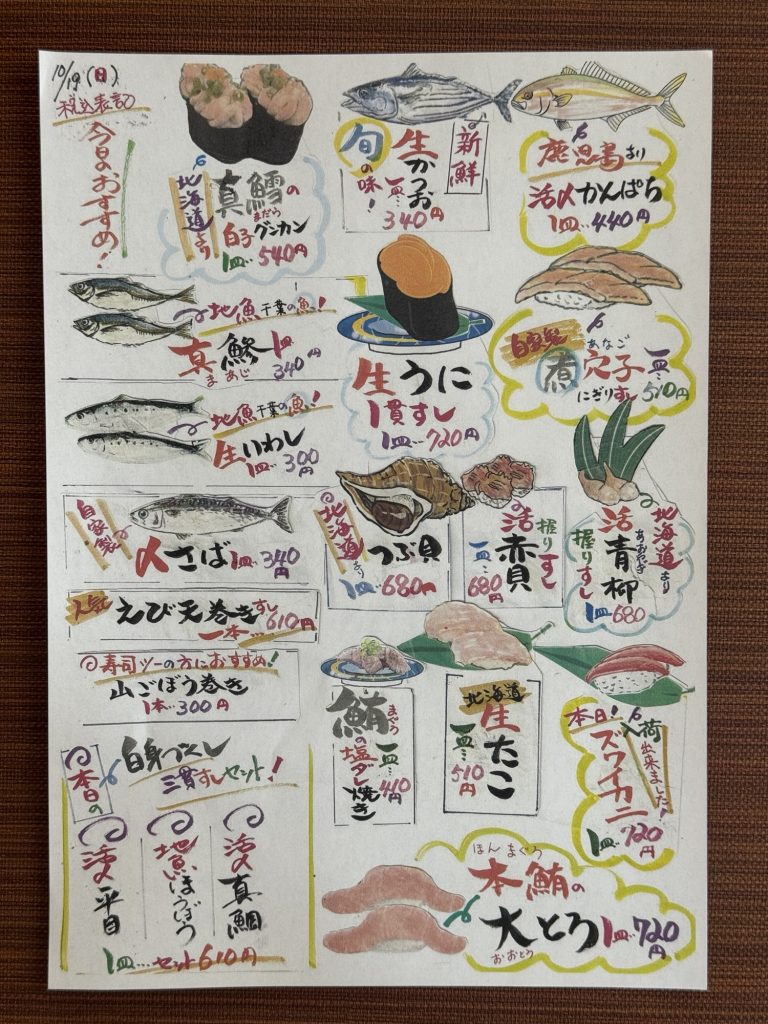 10/19(日)
税込表記
今日のおすすめ!
北海道より
真鱈の
まだら
白子グンカン
1皿…540円
旬の味!
生かつお
一皿…
340円
新鮮
鹿児島より
活〆かんぱち
1皿…440円
地魚千葉の魚っ!
真鯵
まあじ
1皿
340円
生うに
1貫すし
1皿…720円
自家製
煮穴子
あなご
にぎりすし
一皿…
510円
地魚千葉の魚っ!
生いわし
1皿…300円
自家製
〆さば 1皿…340円
北海道より
つぶ貝
1皿…680円
活赤貝
握りすし
一皿…
680円
北海道より
活青柳
あおやぎ
握りすし
1皿…680
人気 えび天巻きすし
一本…610円
寿司ツーの方におすすめ!
山ごぼう巻き
1本…300円
鮪の塩ダレ焼き
まぐろ
一皿…
410円
北海道
生たこ
一皿…
510円
本日!入荷出来ました!
ズワイカニ
1皿…720円
本日の
白身づくし
三貫すしセット!
活〆真鯛
地魚ほうぼう
活〆平目
1皿…セット610円
ほんまぐろ
本鮪の
大とろ 1皿…720円
おおとろ